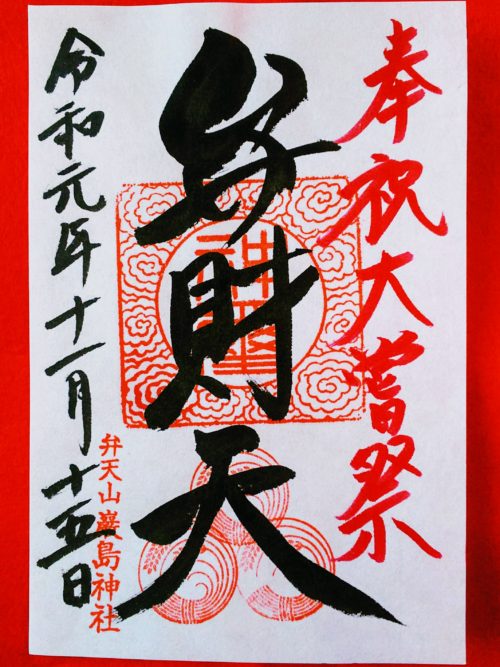 奉祝大嘗祭
弁財天
令和元年十一月十五日
弁天山巖島神社